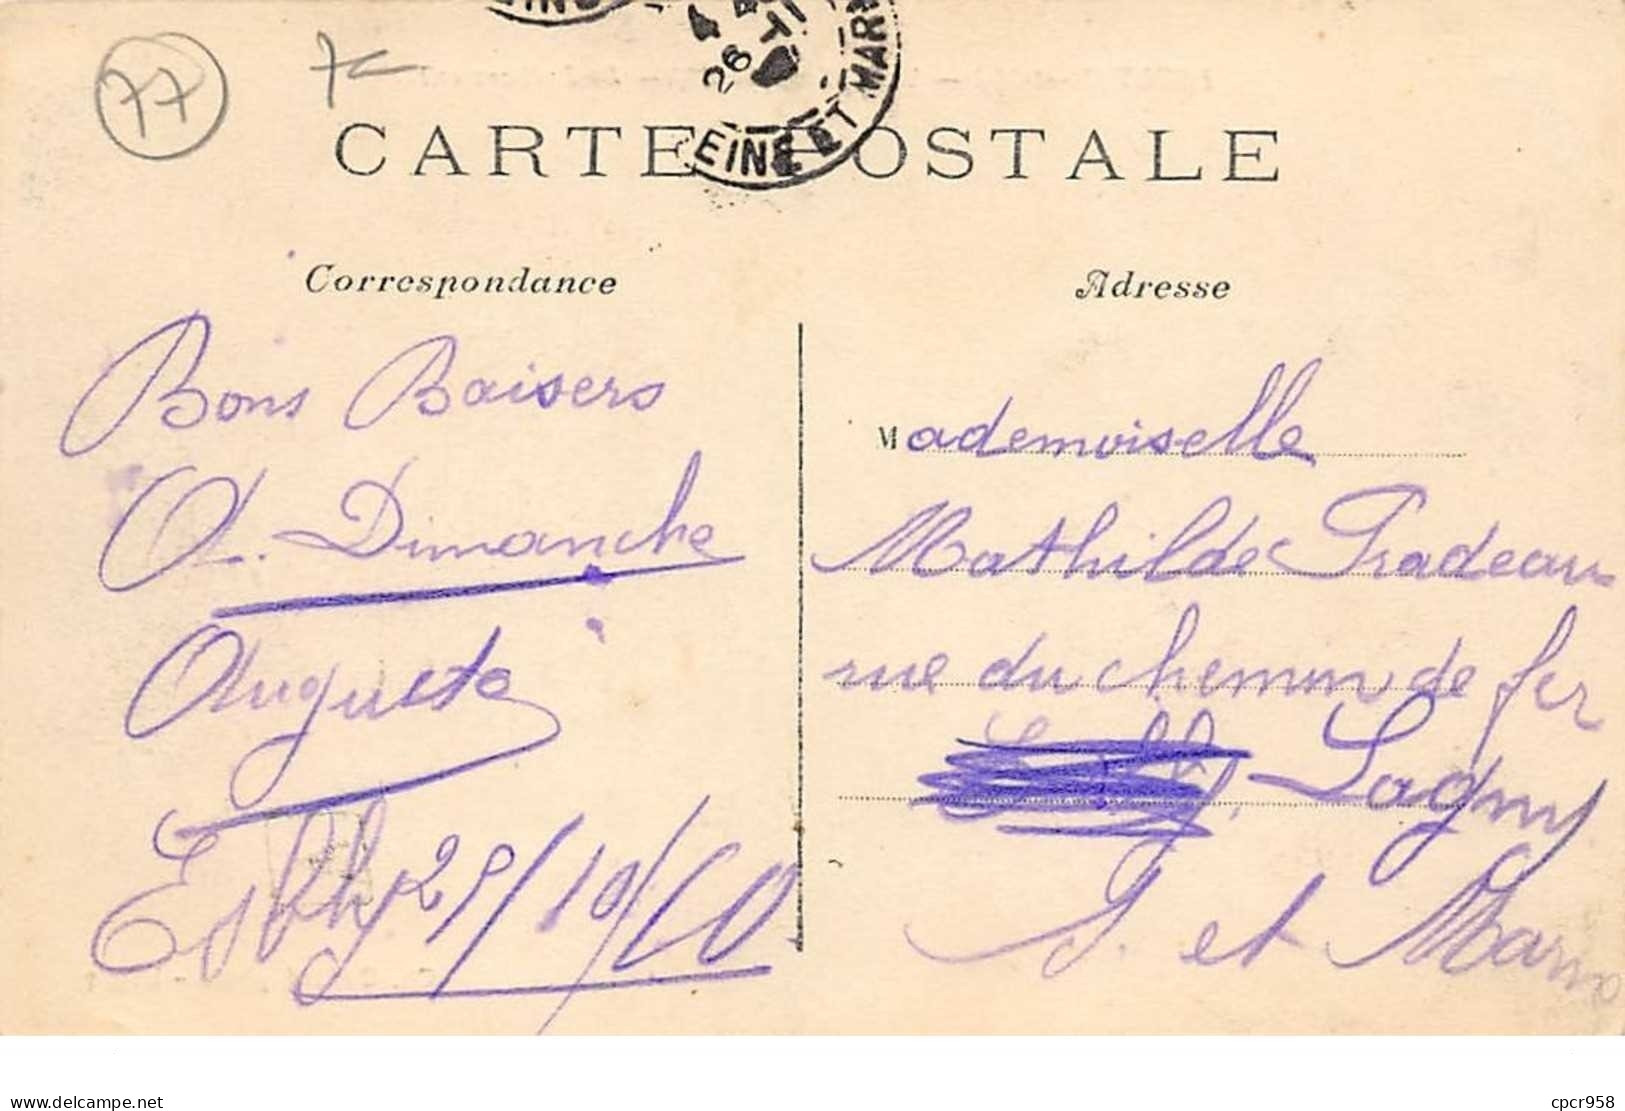 77
EINE ET MAR
26
CARTE POSTALE
Correspondance
Adresse
Bons Baisers
A. Dimanche
Augusta
Esbly 25/10/10
Mademoiselle
Mathilde Pradeau
rue du chemin de fer
Lagny
S. et Marne
www.delcampe.net
cpcr958